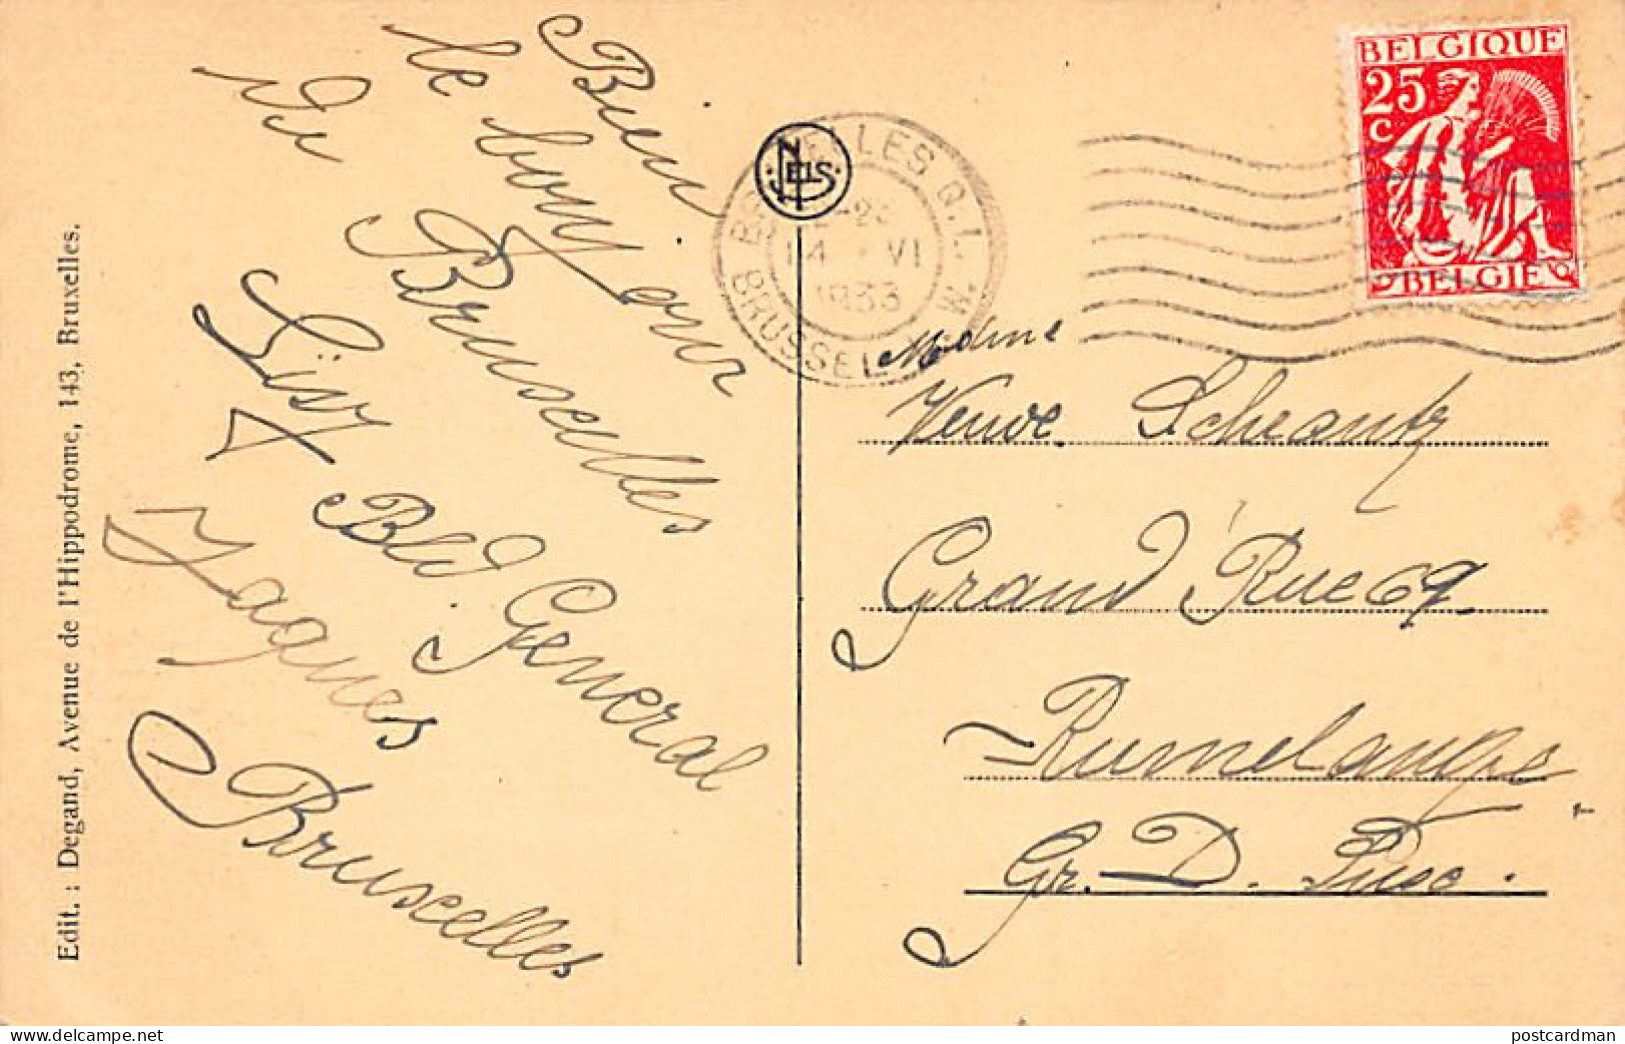 Edit. : Degand, Avenue de l'Hippodrome, 143, Bruxelles.
Bien
le bonjour
De Bruxelles
Bld General
Jaques
Bruxelles
NELS
BRUXELLES Q.L.
14 VI
1933
BRUSSEL W.
BELGIQUE
25
C
BELGIE
Mdme
Veuve
Grand Rue 69
Rumelange
Gr. D.
postcardman
www.delcampe.net